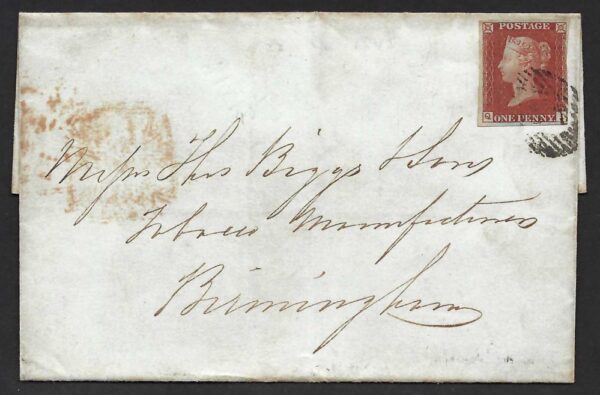 POSTAGE
Q
ONE PENNY
Messrs Thos Biggs & Sons
Tobacco Manufacturers
Birmingham